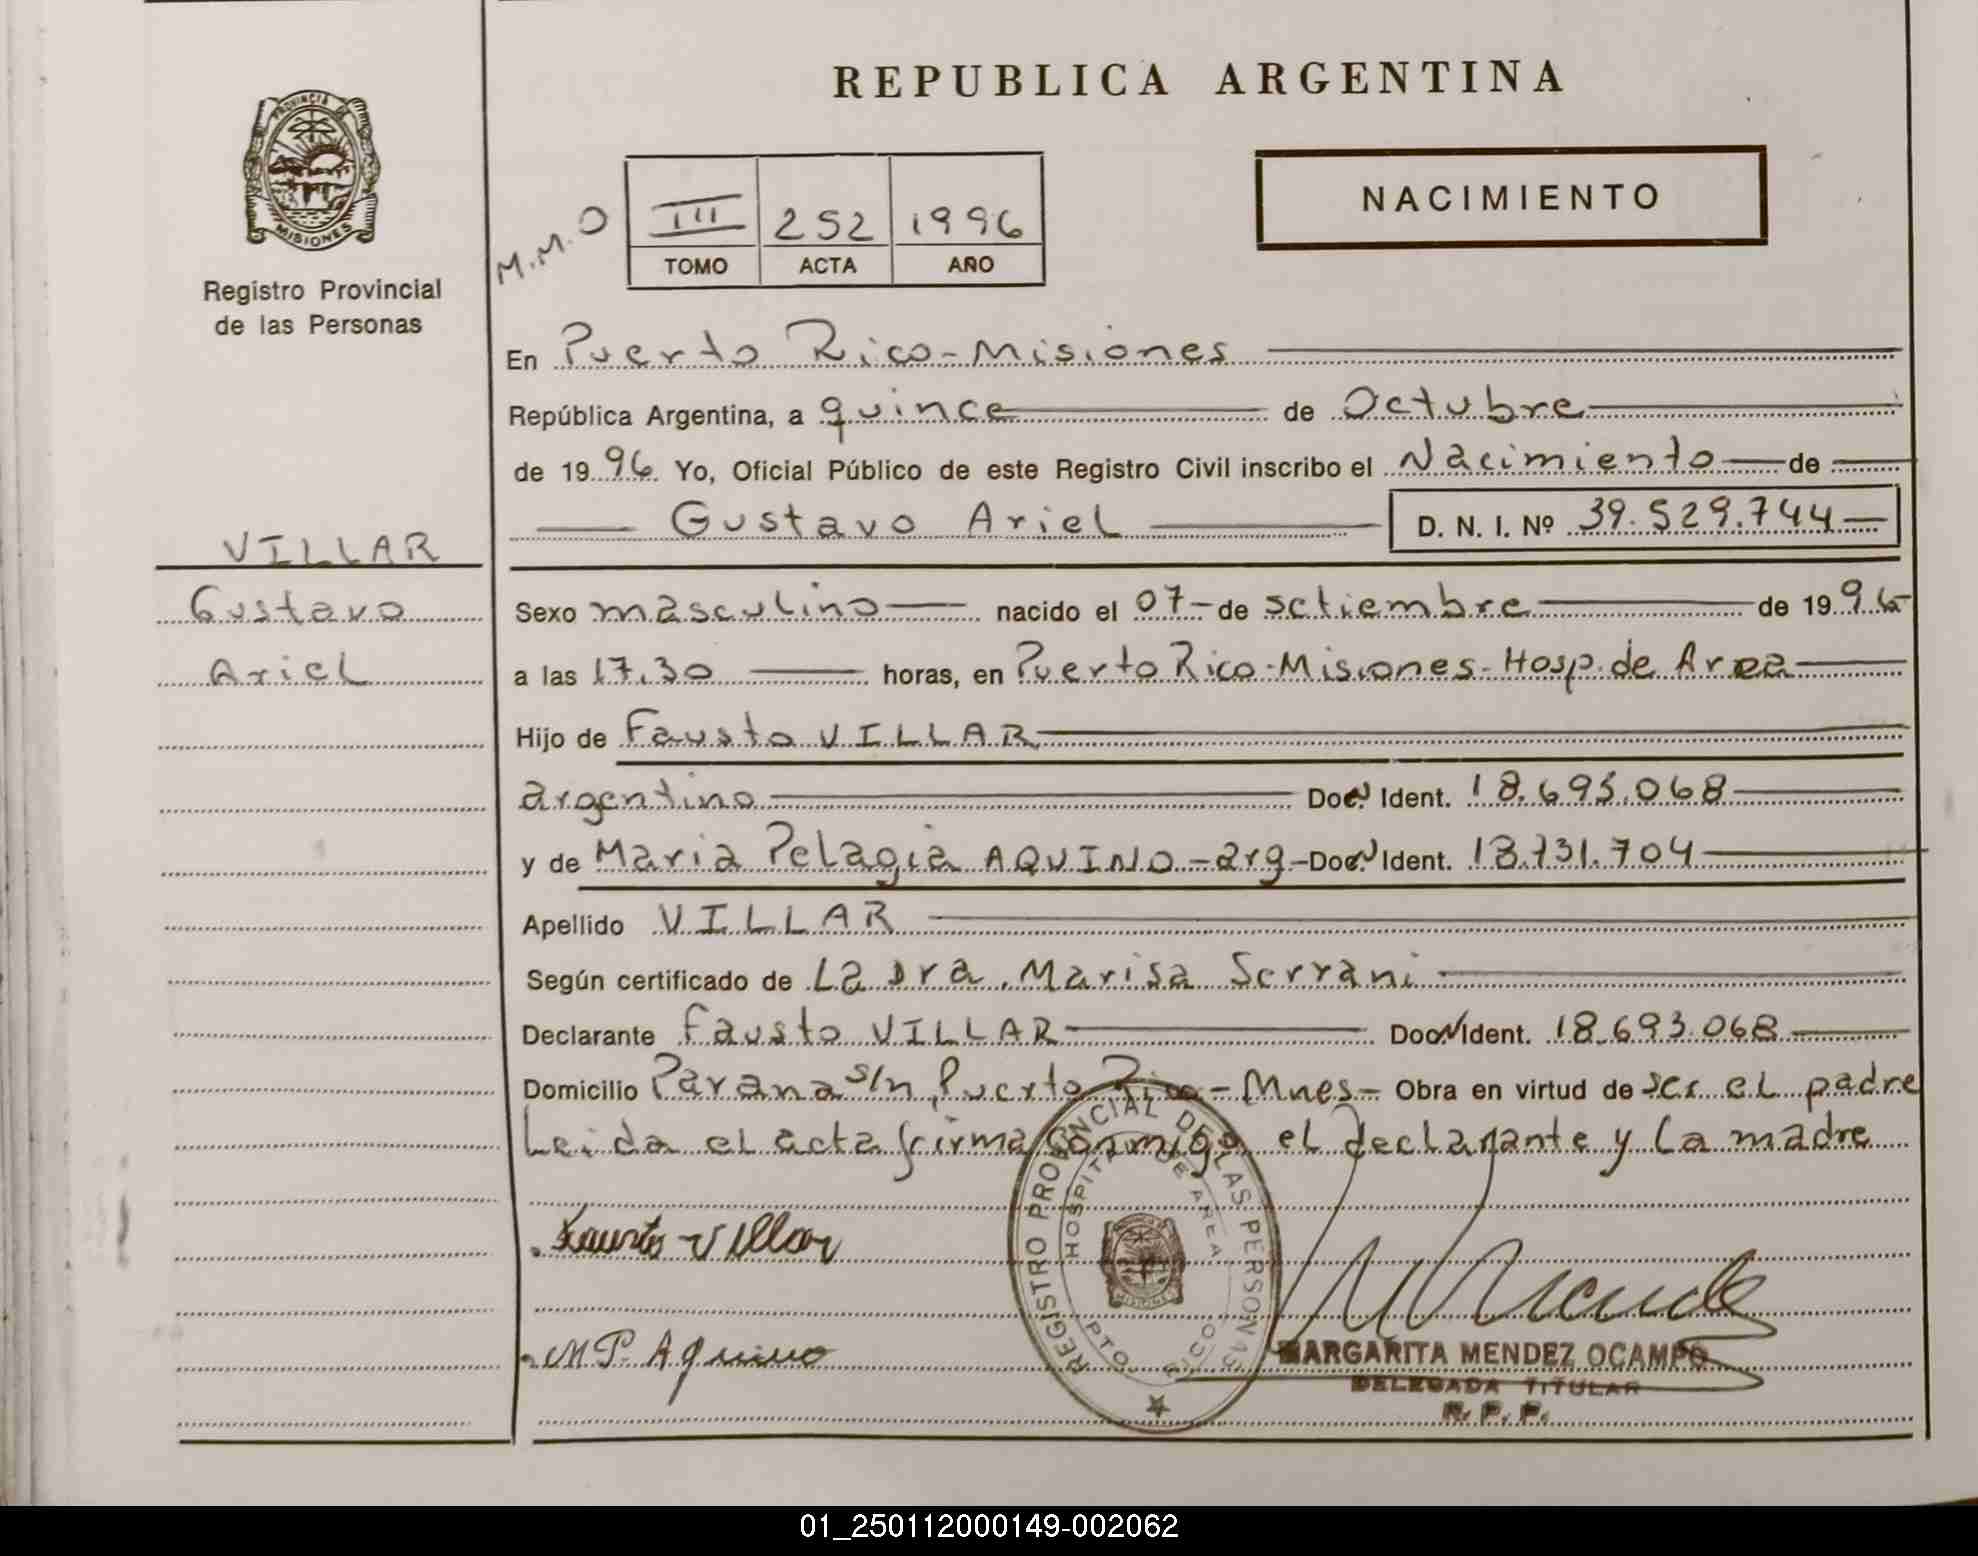 REPUBLICA ARGENTINA
PROVINCIA DE
MISIONES
Registro Provincial
de las Personas
M.M.O
III 252 1996
TOMO ACTA AÑO
NACIMIENTO
En Puerto Rico-Misiones
República Argentina, a quince de Octubre
de 1996 Yo, Oficial Público de este Registro Civil inscribo el Nacimiento de
Gustavo Ariel D. N. I. Nº 39.529.744
VILLAR
Gustavo
Ariel
Sexo masculino nacido el 07 de setiembre de 1996
a las 17,30 horas, en Puerto Rico-Misiones-Hosp. de Area
Hijo de Fausto VILLAR
argentino Doc. Ident. 18.693.068
y de Maria Pelagia AQUINO-arg-Doc. Ident. 18.731.704
Apellido VILLAR
Según certificado de La Dra. Marisa Serrani
Declarante Fausto VILLAR Doc. Ident. 18.693.068
Domicilio Parana s/n, Puerto Rico-Mnes- Obra en virtud de ser el padre
Leida el acta firma conmigo el declarante y la madre
Fausto Villar
M P. Aquino
REGISTRO PROVINCIAL DE LAS PERSONAS
HOSPITAL DE AREA
PTO RICO
MISIONES
MARGARITA MENDEZ OCAMPO
DELEGADA TITULAR
R. P. P.
01_250112000149-002062